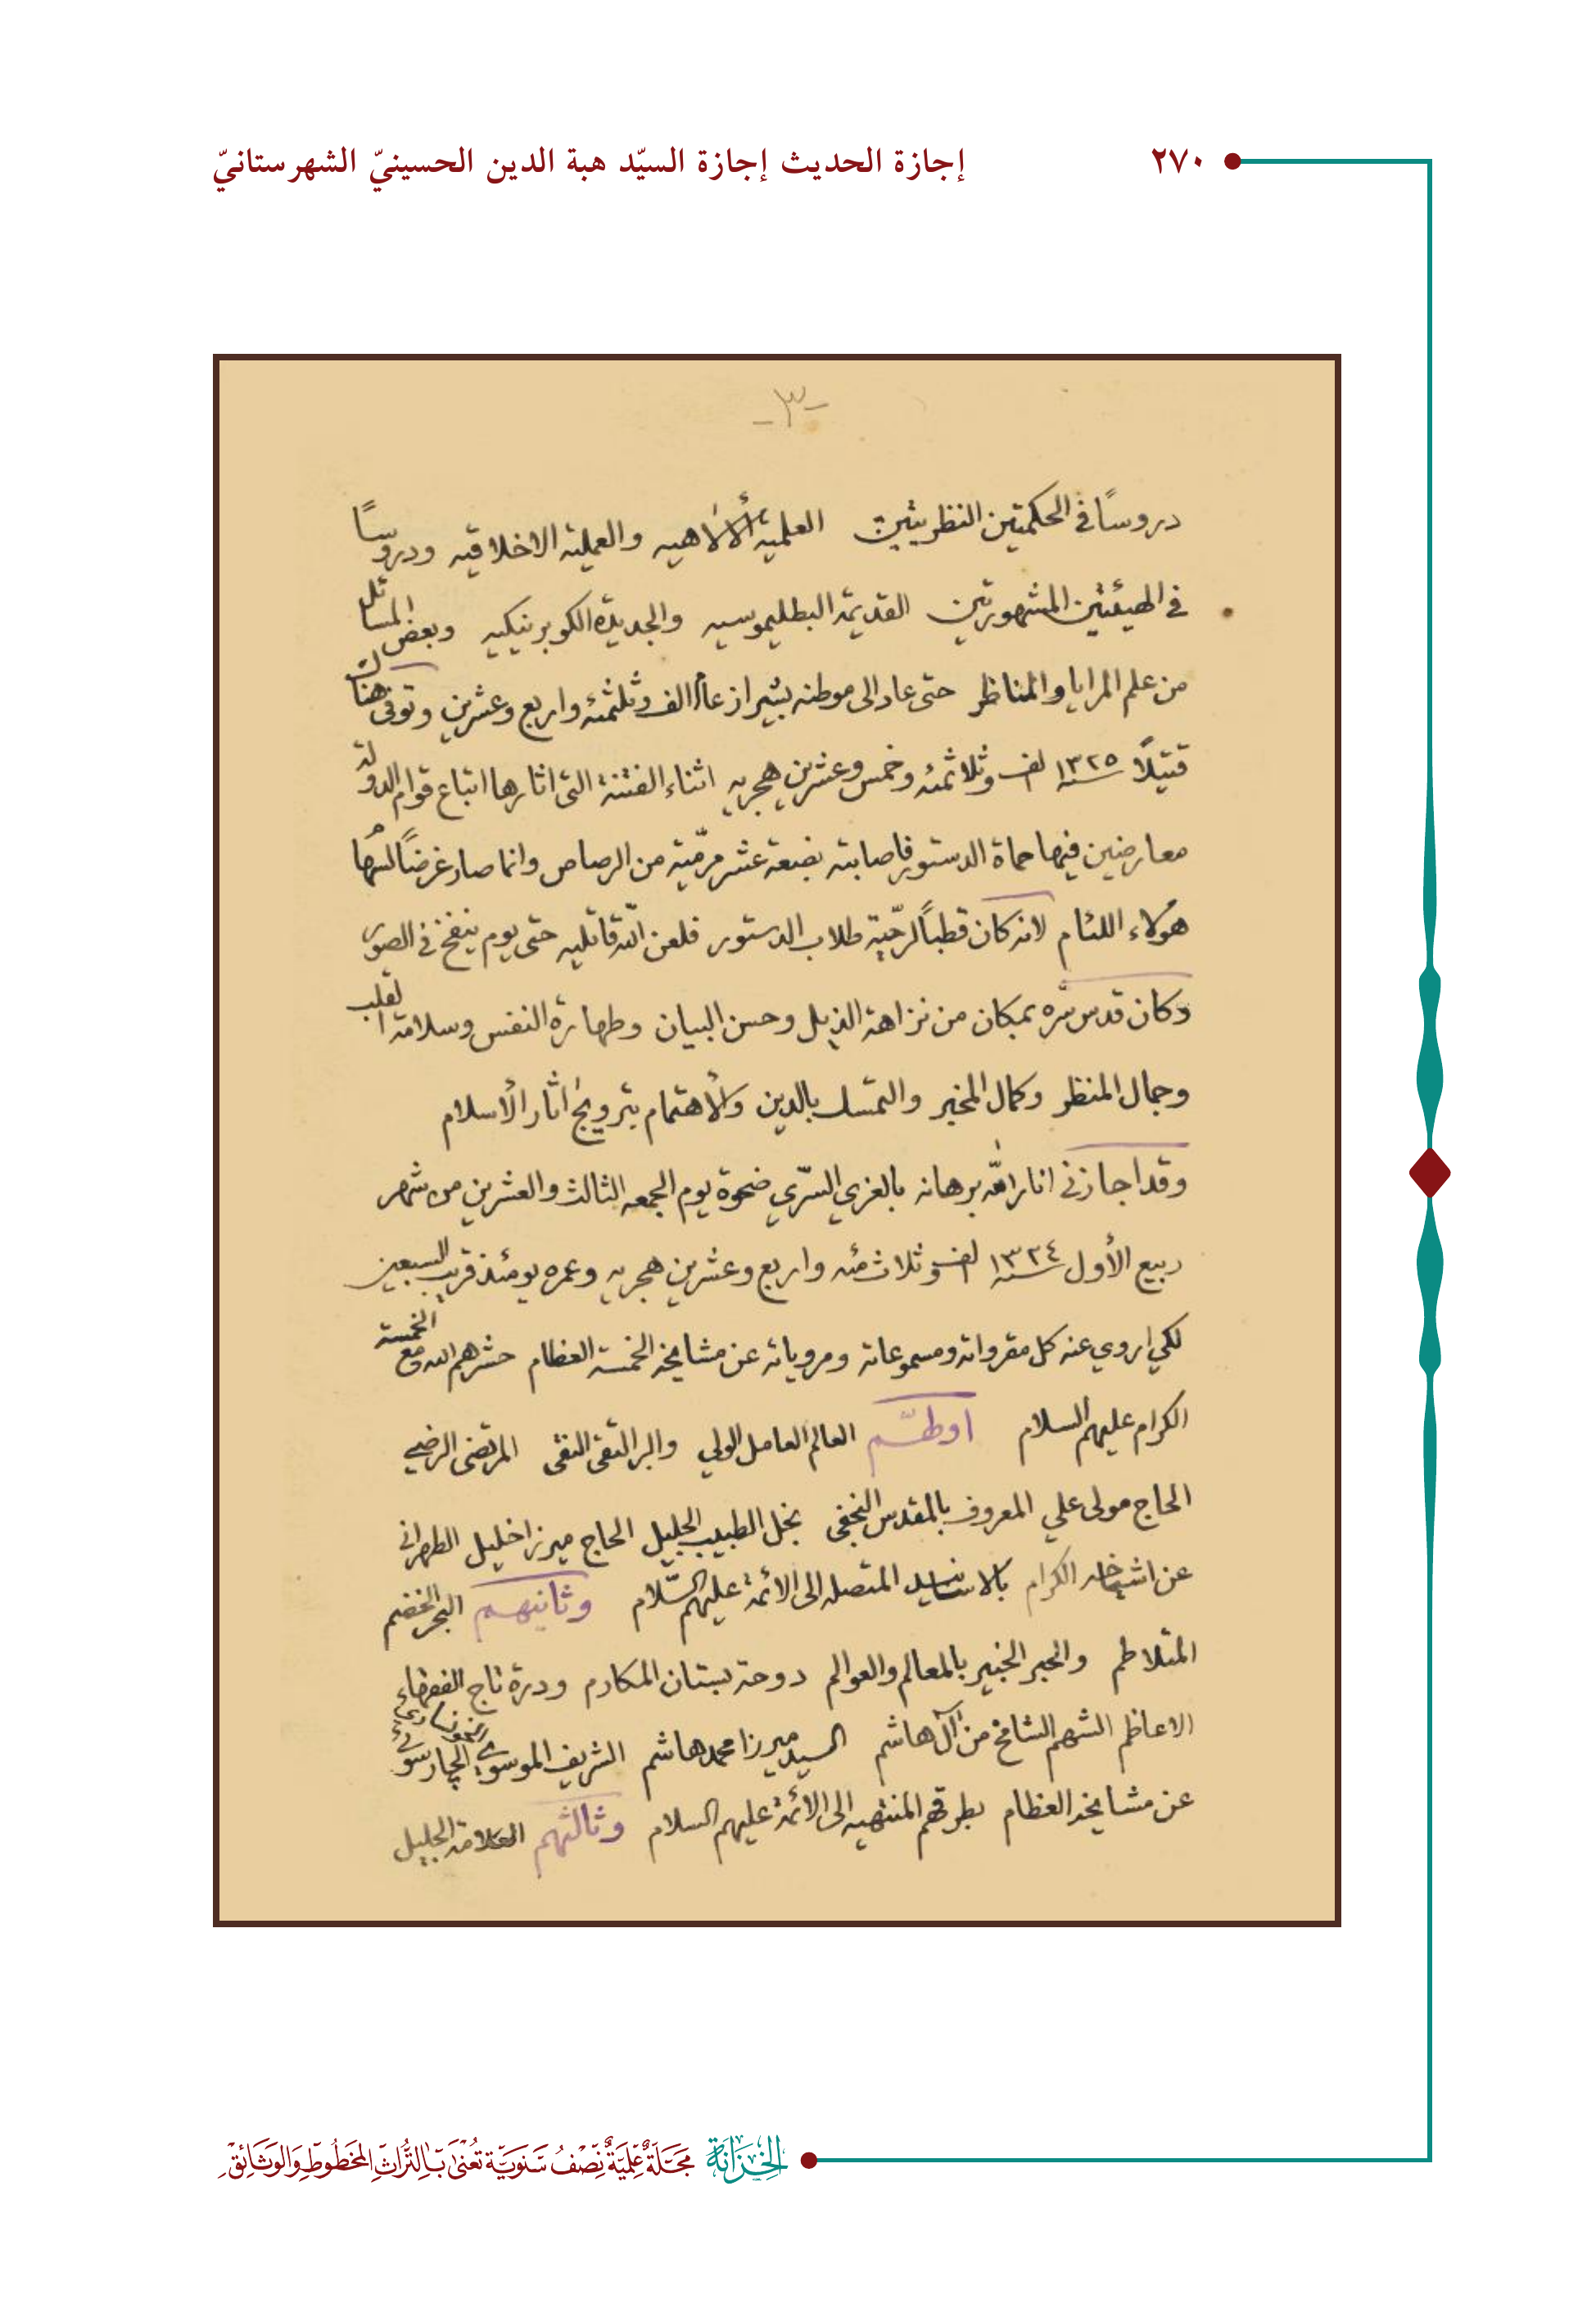 ٢٧٠
إجازة الحديث إجازة السيّد هبة الدين الحسينيّ الشهرستانيّ
-٣-
دروسًا في الحكمتين النظريتين العلمية الألاهيه والعملية الاخلاقيه ودروسًا
في الهيئتين المشهورتين القديمة البطليموسيه والجديدة الكوبرنيكيه وبعض المسائل
من علم المرايا والمناظر حتى عاد الى موطنه بشيراز عام الف وثلثمئه واربع وعشرين وتوفى هناك
قتيلًا سنه ١٣٢٥ الف وثلاثمئه وخمس وعشرين هجريه اثناء الفتنة التى اثارها اتباع قوام الدولة
معارضين فيها حماة الدستور فاصابته بضعة عشر مرمّية من الرصاص وانما صار غرضًا لسهام
هؤلاء اللئام لانه كان قطبًا لرحّية طلاب الدستور فلعن الله قاتليه حتى يوم ينفخ في الصور
وكان قدس سره بمكان من نزاهة الذيل وحسن البيان وطهارة النفس وسلامة القلب
وجمال المنظر وكمال المخبر والتمسك بالدين والأهتمام بترويج اثار الأسلام
وقد اجازني انار الله برهانه بالغري السّري ضحوة يوم الجمعه الثالث والعشرين من شهر
ربيع الأول سنه ١٣٢٤ الف وثلاث مئه واربع وعشرين هجريه وعمره يومئذ قريب السبعين
لكي اروي عنه كل مقرواته ومسموعاته ومروياته عن مشايخه الخمسة العظام حشرهم الله مع الخمسة
الكرام عليهم السلام اولهم العالم العامل الولي والبر التقى النقى المرتضى الرضي
الحاج مولى علي المعروف بالمقدس النجفى نجل الطبيب الجليل الحاج ميرزا خليل الطهراني
عن اشياخه الكرام بالاسانيد المتصله الى الائمة عليهم السّلام وثانيهم البحر الخضم
المتلاطم والحبر الخبير بالمعالم والعوالم دوحة بستان المكارم ودرة تاج الفقهاء
الاعاظم الشهم الشامخ من آل هاشم السيد ميرزا محمد هاشم الشريف الموسوي الچارسوئي
عن مشايخه العظام بطرقهم المنتهيه الى الائمة عليهم السلام وثالثهم العلامة الجليل
الخِزَانَة مَجَلَّةٌ عِلْمِيَّةٌ نِصْفُ سَنَوِيَّة تُعْنَىٰ بِالتُّرَاثِ المَخْطُوطِ وَالوَثَائِقِ